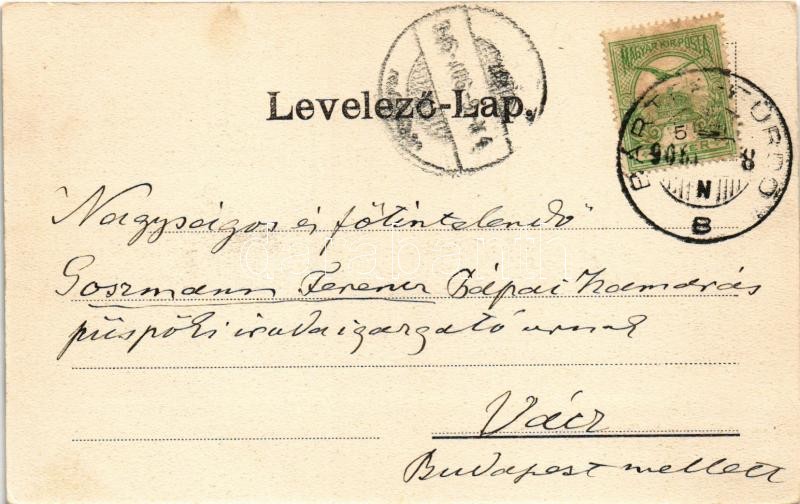 Levelező-Lap.
MAGYAR KIR. POSTA
5
BÁRTFAFÜRDŐ
N
8
"Nagyságos és főtisztelendő"
Goszmann Ferencz Pápai kamarás
püspöki irodaigazgató urnak
Vácz
Budapest mellett